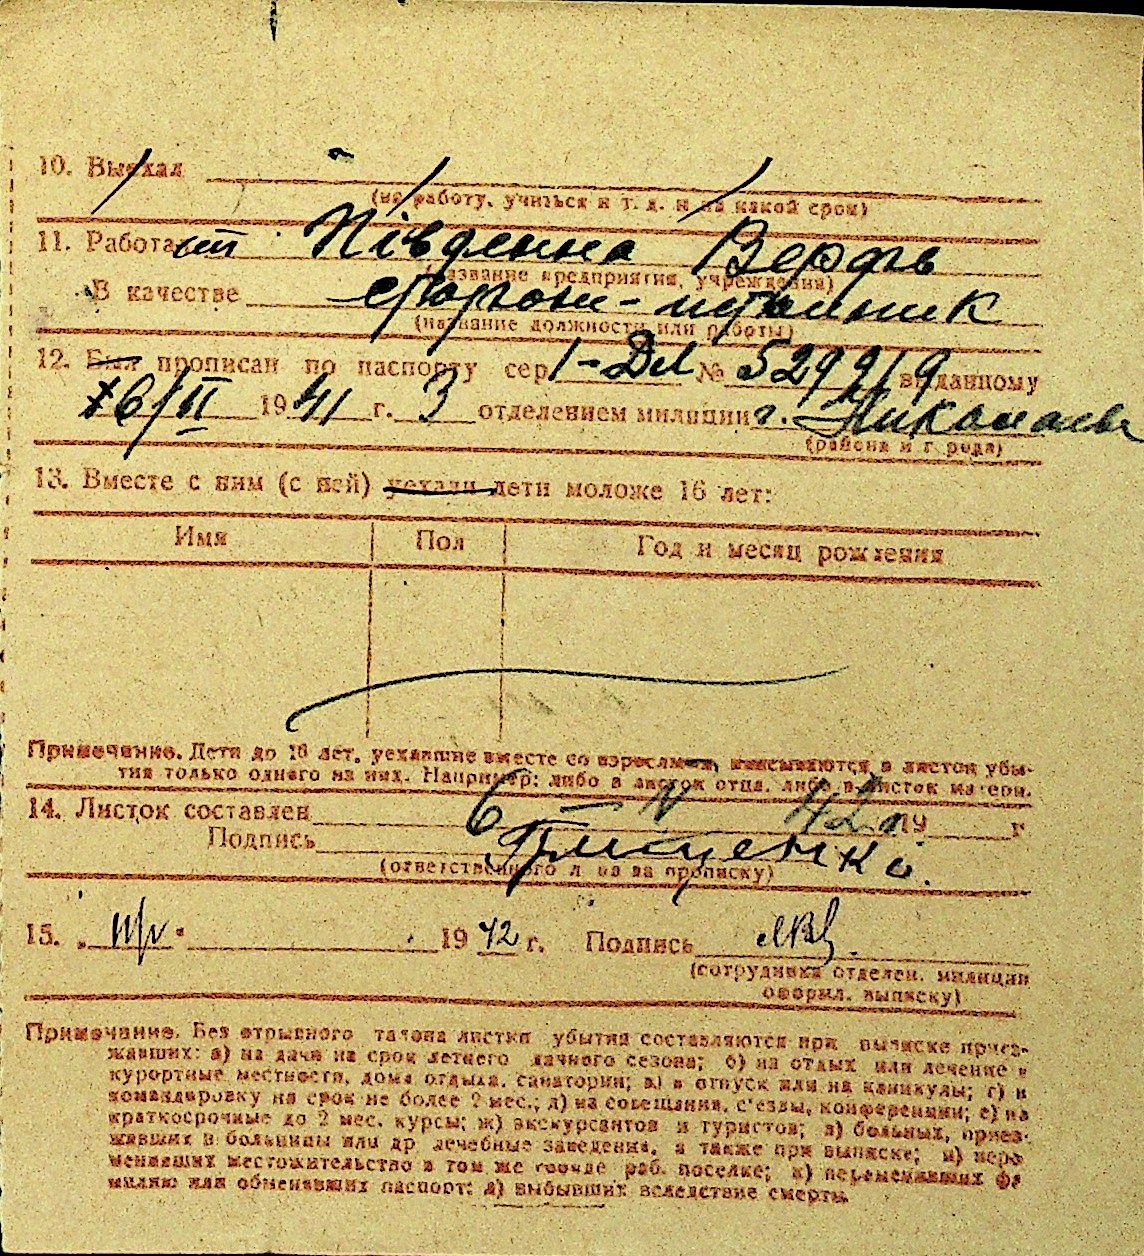 10. Выехал
(на работу, учиться и т. д. и на какой срок)
11. Работает Південна Верфь
(название предприятия, учреждения)
В качестве сторож-
(название должности или работы)
12. Был прописан по паспорту сер I-ДЛ № 529919 выданному
16/II 1941 г. 3 отделением милиции г. Николаева
(района и города)
13. Вместе с ним (с ней) уехали дети моложе 16 лет:
Имя Пол Год и месяц рождения
Примечание. Дети до 16 лет, уехавшие вместе со взрослыми, вписываются в листок убы-
тия только одного из них. Например: либо в листок отца, либо в листок матери.
14. Листок составлен 6 — IV 42 г. 19 г
Подпись
(ответственного л ца за прописку)
15. „ " 1942 г. Подпись
(сотрудника отделен. милиции
оформл. выписку)
Примечание. Без отрывного талона листки убытия составляются при выписке приез-
жавших: а) на дачи на срок летнего дачного сезона; б) на отдых или лечение в
курортные местности, дома отдыха, санатории; в) в отпуск или на каникулы; г) в
командировку на срок не более 2 мес.; д) на совещания, с'езды, конференции; е) на
краткосрочные до 2 мес. курсы; ж) экскурсантов и туристов; з) больных, приез-
жавших в больницы или др лечебные заведения, а также при выписке; и) пере
менявших местожительство в том же городе раб. поселке; к) переменивших фа
милию или обменявших паспорт; л) выбывших вследствие смерти.